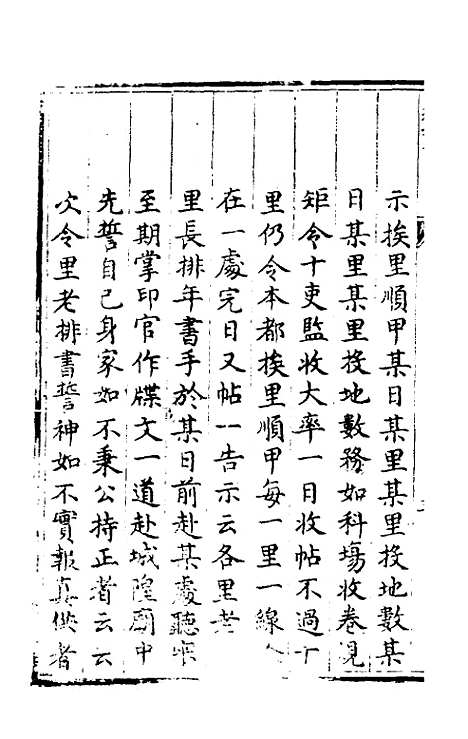 示挨里順甲某日某里某里投地數某
日某里某里投地數務如科塲收卷規
矩令十吏監收大率一日收帖不過十
里仍令本都挨里順甲每一里一線
在一處完日又帖一告示云各里老
里長排年書手於某日前赴某處聽
至期掌印官作牒文一道赴城隍廟中
先誓自己身家如不秉公持正者云云
次令里老排書誓神如不實報真供者